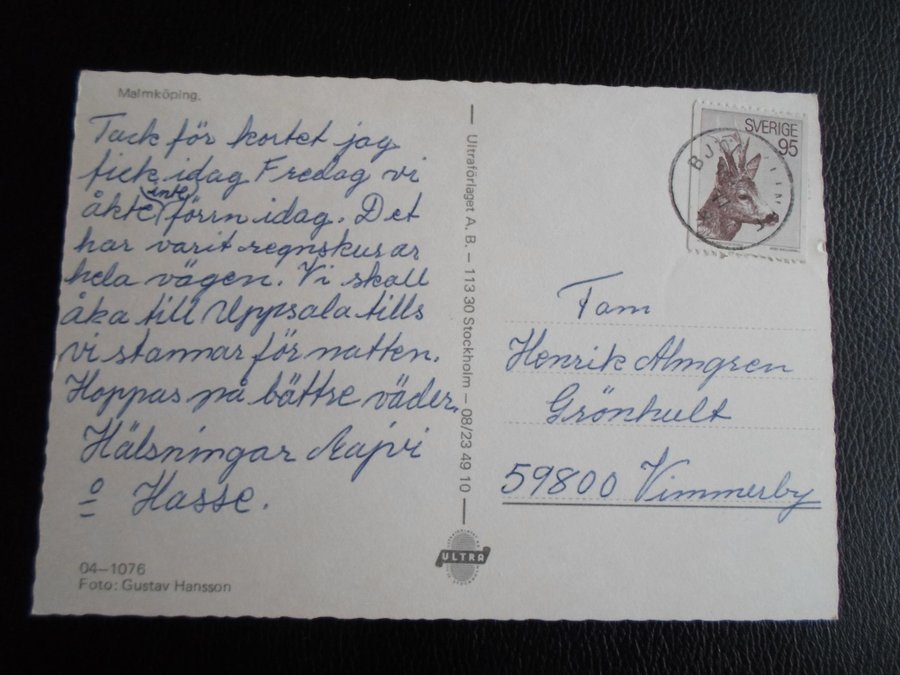 Malmköping.
Tack för kortet jag
fick idag Fredag vi
åkte inte förrn idag. Det
har varit regnskurar
hela vägen. Vi skall
åka till Uppsala tills
vi stannar för natten.
Hoppas på bättre väder.
Hälsningar Majvi
o Hasse.
04–1076
Foto: Gustav Hansson
Ultraförlaget A. B. – 113 30 Stockholm – 08/23 49 10
ULTRA
SVERIGE
95
Fam
Henrik Almgren
Grönhult
59800 Vimmerby